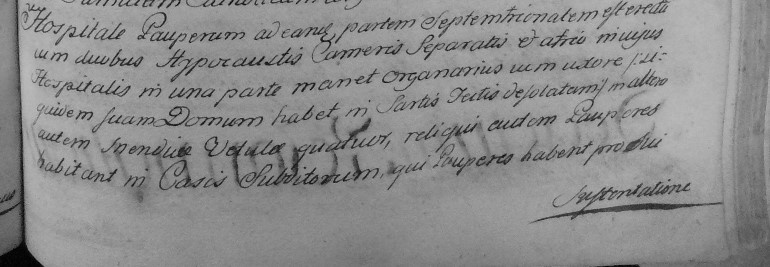 Hospitale Pauperum ad eandē partem Septemtrionalem est erectū
cum duobus Hypocaustis Cameris Separatis et atrio in cujus
Hospitalis in una parte manet Organarius cum uxore /:si-
quidem suam Domum habet in Sartis Tectis desolatam:/ in altero
autem Mendicæ Vetulæ quatuor, reliqui autem Pauperes
habitant in Casis Subditorum, qui Pauperes habent pro sui
Sustentatione